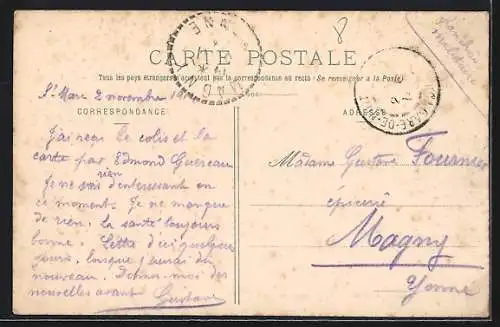 8
CARTE POSTALE
Tous les pays étrangers n'acceptent pas la correspondance au recto - Se renseigner à la Poste
St Marc 2 novembre 19
CORRESPONDANCE
ADRESSE
J'ai reçu le colis et la
carte par Edmond Guereau
rien
Je ne vois d'interessant en
ce moment. Je ne manque
de rien, la santé toujours
bonne. Lettre d'ici quelques
jours, lorsque j'aurai du
nouveau. Donne-moi des
nouvelles avant
Gustave
Madame Gustave Fournier
épicerie
Magny
Yonne